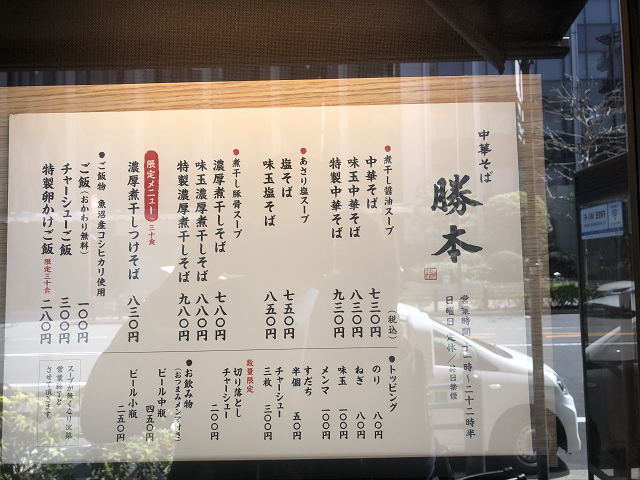 中華そば
勝本
営業時間 十一時〜二十二時半
日曜日定休／終日禁煙
●煮干し醤油スープ
(税込)
中華そば 七三〇円
味玉中華そば 八三〇円
特製中華そば 九三〇円
●あさり塩スープ
塩そば 七五〇円
味玉塩そば 八五〇円
●煮干し豚骨スープ
濃厚煮干しそば 七八〇円
味玉濃厚煮干しそば 八八〇円
特製濃厚煮干しそば 九八〇円
限定メニュー 三十食
濃厚煮干しつけそば 八三〇円
●ご飯物 魚沼産コシヒカリ使用
ご飯(おかわり無料) 一〇〇円
チャーシューご飯 三〇〇円
特製卵かけご飯 限定三十食 二八〇円
●トッピング
のり 八〇円
ねぎ 八〇円
味玉 一〇〇円
メンマ 一〇〇円
すだち
半個 五〇円
チャーシュー
三枚 三〇〇円
数量限定
切り落とし
チャーシュー
二〇〇円
●お飲み物
(おつまみメンマ付き)
ビール中瓶
四五〇円
ビール小瓶
二五〇円
スープが無くなり次第
営業終了と
させて頂きます